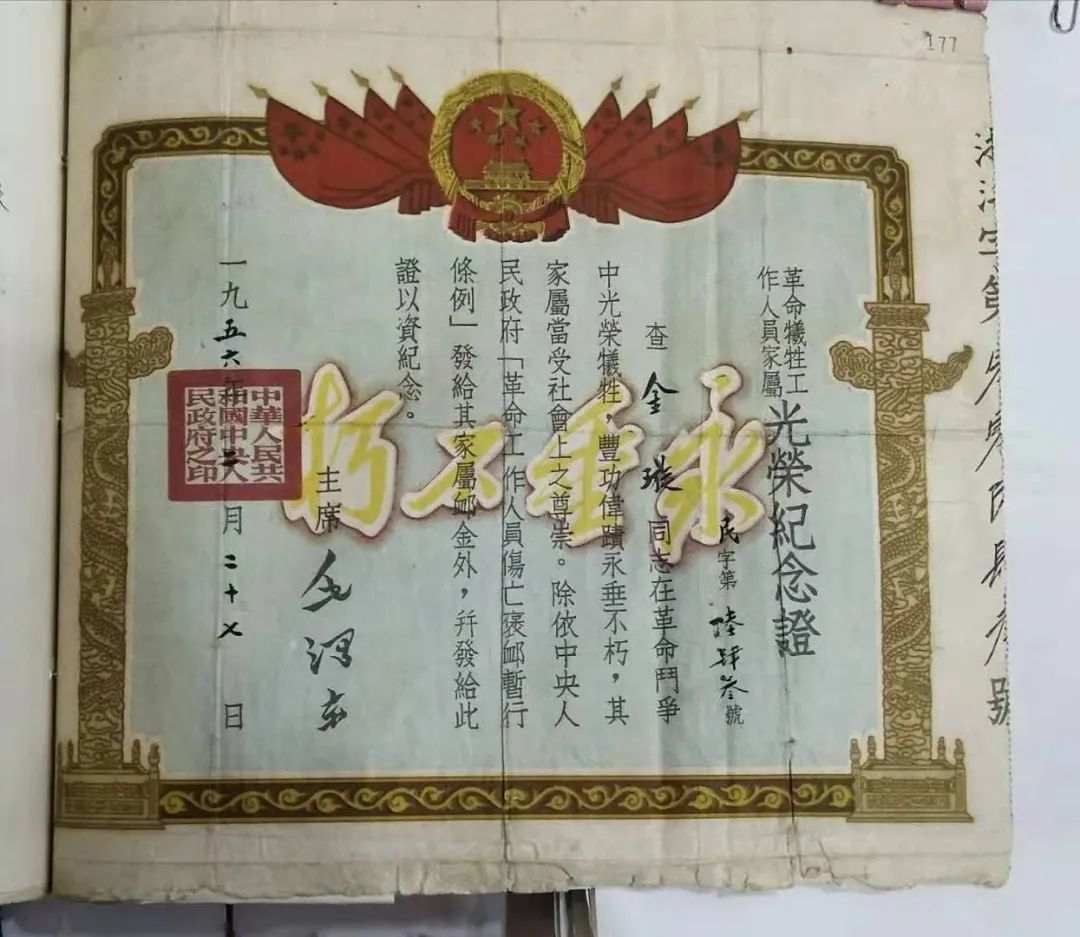 177
革命犧牲工
作人員家屬
光榮紀念證
民字第陸肆叁號
查金璇同志在革命鬥爭
中光榮犧牲，豐功偉蹟永垂不朽，其
家屬當受社會上之尊崇。除依中央人
民政府「革命工作人員傷亡褒卹暫行
條例」發給其家屬卹金外，幷發給此
證以資紀念。
主席 毛澤東
一九五六年 月二十七日
中華人民共
和國中央人
民政府之印
永垂不朽